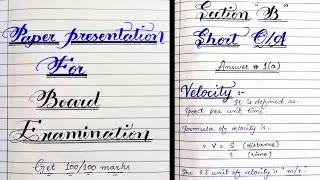 Paper presentation
For
Board
Examination
Get 100/100 marks
Section "B"
Short Q/A
Answer # 1(a)
Velocity :-
It is defined as:
Speed per unit time.
Formula of velocity is:-
V = S (distance)
t (time)
The S.I unit of velocity is "m/s".